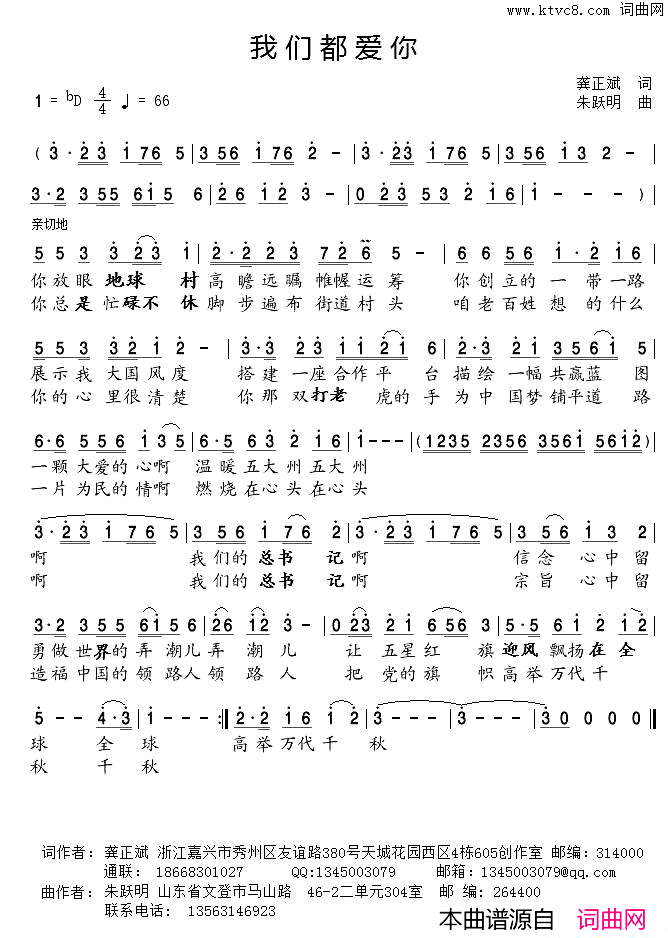 www.ktvc8.com 词曲网
我们都爱你
龚正斌 词
1 = bD 4/4 ♩= 66
朱跃明 曲
( 3 · 2 3 1 7 6 5 | 3 5 6 1 7 6 2 - | 3 · 2 3 1 7 6 5 | 3 5 6 1 3 2 - |
3 · 2 3 5 5 6 1 5 6 | 2 6 1 2 3 - | 0 2 3 5 3 2 1 6 | 1 - - ) |
亲切地
5 5 3 3 2 3 1 | 2 · 2 2 3 7 2 6 5 - | 6 6 5 6 1 · 2 1 6 |
你放眼 地球 村 高瞻远瞩 帷幄运筹 你创立的一 带一路
你总是忙碌不 休 脚步遍布 街道村头 咱老百姓想 的什么
5 5 3 3 2 1 2 - | 3 · 3 2 3 1 1 2 1 6 | 2 · 2 1 2 3 5 6 1 5 |
展示我 大国风度 搭建一座合作平 台描绘一幅共赢蓝 图
你的心 里很清楚 你那双打老 虎的手为中国梦铺平道 路
6 · 6 5 5 6 1 3 5 | 6 · 5 6 3 2 3 2 | 1 - - - | ( 1 2 3 5 2 3 5 6 3 5 6 1 5 6 1 2 ) |
一颗大爱的心啊 温暖五大州五大州
一片为民的情啊 燃烧在心头在心头
3 · 2 3 1 7 6 5 | 3 5 6 1 7 6 2 | 3 · 2 3 1 7 6 5 | 3 5 6 1 3 2 |
啊 我们的总书 记啊 信念 心中留
啊 我们的总书 记啊 宗旨 心中留
3 · 2 3 5 5 6 1 5 | 2 6 1 2 3 - | 0 2 3 2 1 6 5 6 3 | 5 · 5 6 1 2 1 2 |
勇做世界的弄潮儿弄 潮儿 让 五星红 旗迎风飘扬在全
造福中国的领路人领 路人 把 党的旗 帜高举万代千
5 - - 4 · 3 | 1 - - - :| 2 · 2 1 6 1 2 | 3 - - - | 3 - - - | 3 0 0 0 0 |
球 全球 高举万代千 秋
秋 千秋
词作者: 龚正斌 浙江嘉兴市秀州区友谊路380号天城花园西区4栋605创作室 邮编:314000
通联: 18668301027 QQ:1345003079 邮箱:1345003079@qq.com
曲作者: 朱跃明 山东省文登市马山路 46-2二单元304室 邮 编:264400
联系电话: 13563146923
本曲谱源自 词曲网